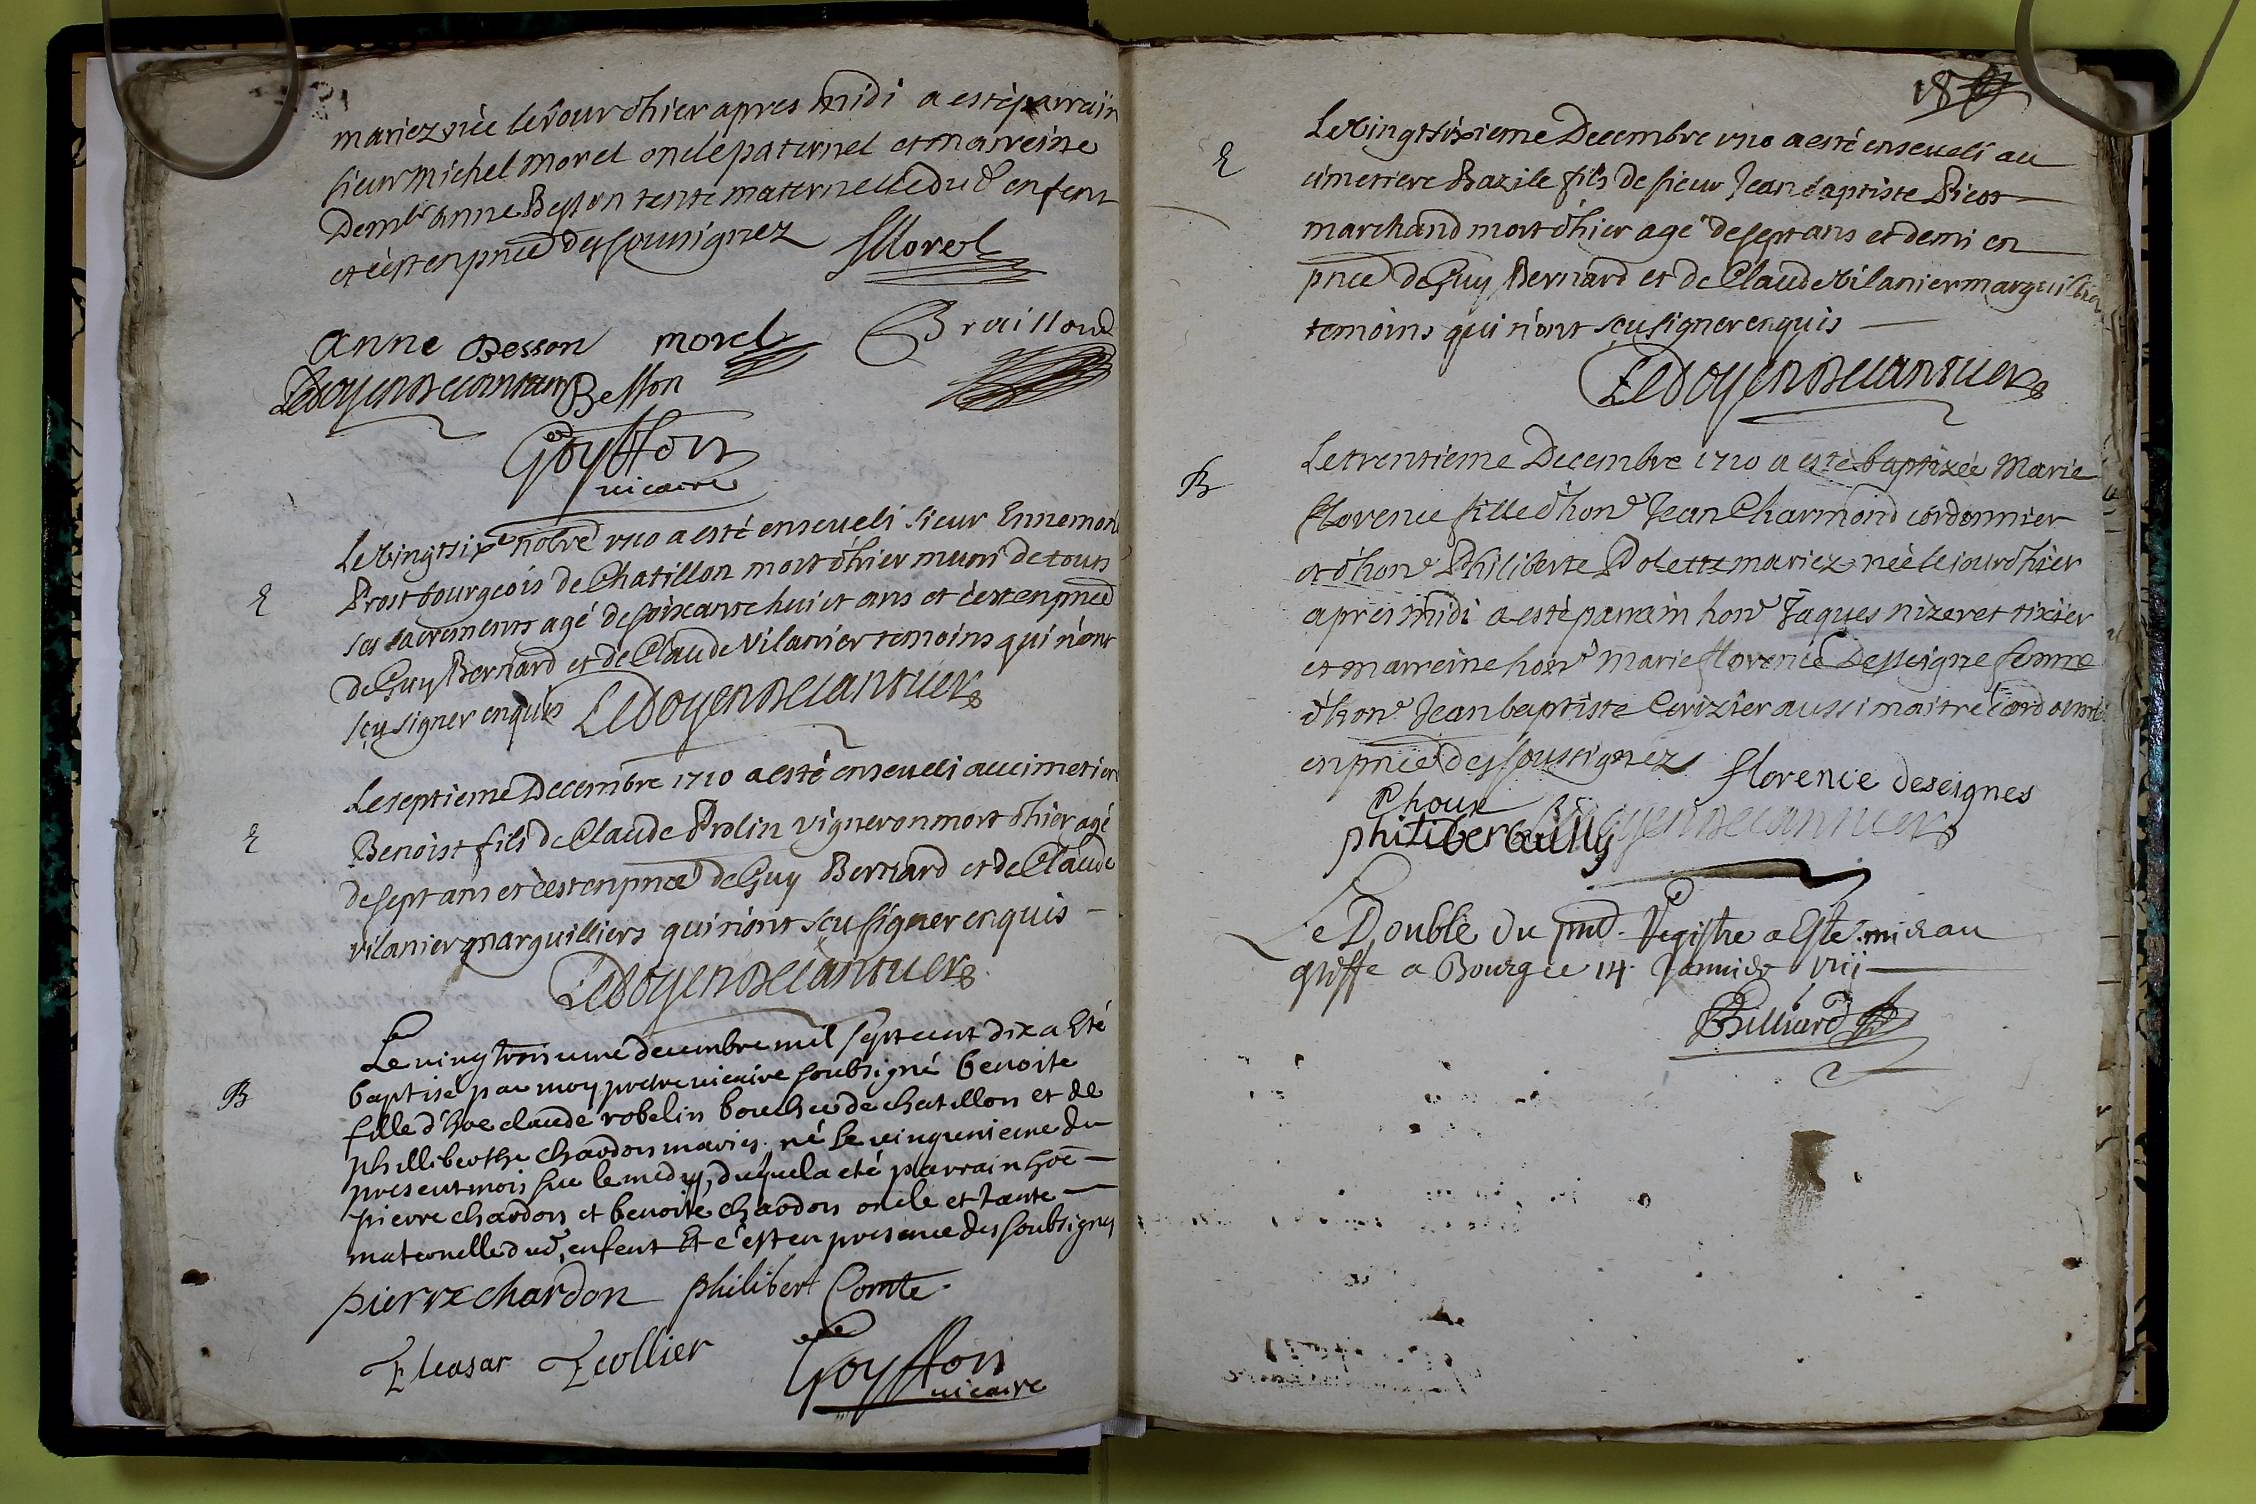 mariez née le jour d'hier apres midi a esté parrain
sieur Michel Morel oncle paternel et marreine
Dem.lle anne Besson tente maternelle dud enfent
et c'est en pnce des sousignez SMorel
anne Besson morel Braillond
Ledoyendecantuer Besson
Goyffon
vicaire
E
Le vingtsix.e nobre 1710 a esté enseveli sieur Ennemon
Prost bourgeois de Chatillon mort d'hier muni de tous
ses sacremens agé de soixante huict ans et c'est en pnce
de Guy Bernard et de Claude Vilanier temoins qui n'ont
sçu signer enquis Ledoyendecantuer
E
Le septieme Decembre 1710 a esté enseveli au cimetiere
Benoist fils de Claude Prolin vigneron mort d'hier agé
de sept ans et c'est en pnce de Guy Bernard et de Claude
vilanier marguilliers qui n'ont sçu signer enquis
Ledoyendecantuer
B
Le vingtroisieme decembre mil sept cent dix a Eté
baptisé par moy pretre vicaire soubsigné benoite
fille d'hoe claude robelin boucher de chatillon et de
philliberthe chardon mariés, né le vingunieme du
present mois sur le midy, duquel a été parrain hoe
pierre chardon et benoite chardon oncle et tante
maternelle dud, enfent Et c'est en presence des soubsignes
pierre chardon philibert Comte
Eleasar Ecollier Goyffon
vicaire
E
Le vingtsixieme Decembre 1710 a esté enseveli au
cimetiere Bazile fils de sieur Jean baptiste Picot
marchand mort d'hier agé de sept ans et demi en
pnce de Guy Bernard et de Claude Vilanier marguilliers
temoins qui n'ont sçu signer enquis
Ledoyendecantuer
B
Le trentieme Decembre 1710 a esté baptizée Marie
florence fille d'hon.e Jean Charmond cordonnier
et d'hon.e Philiberte Polette mariez née le jourd'hier
apres midi a esté parrain hon.e Jaques nizeret tixier
et marreine hon.e Marie florence Desseigne femme
d'hon.e Jean baptiste Cerizier aussi maitre cordonnie
en pnce des soussignez florence deseignes
Choux
philibert bailly Ledoyendecantuer
Le Double du pnt. Registre a Esté mis au
greffe a Bourg le 14. Janvier 1711